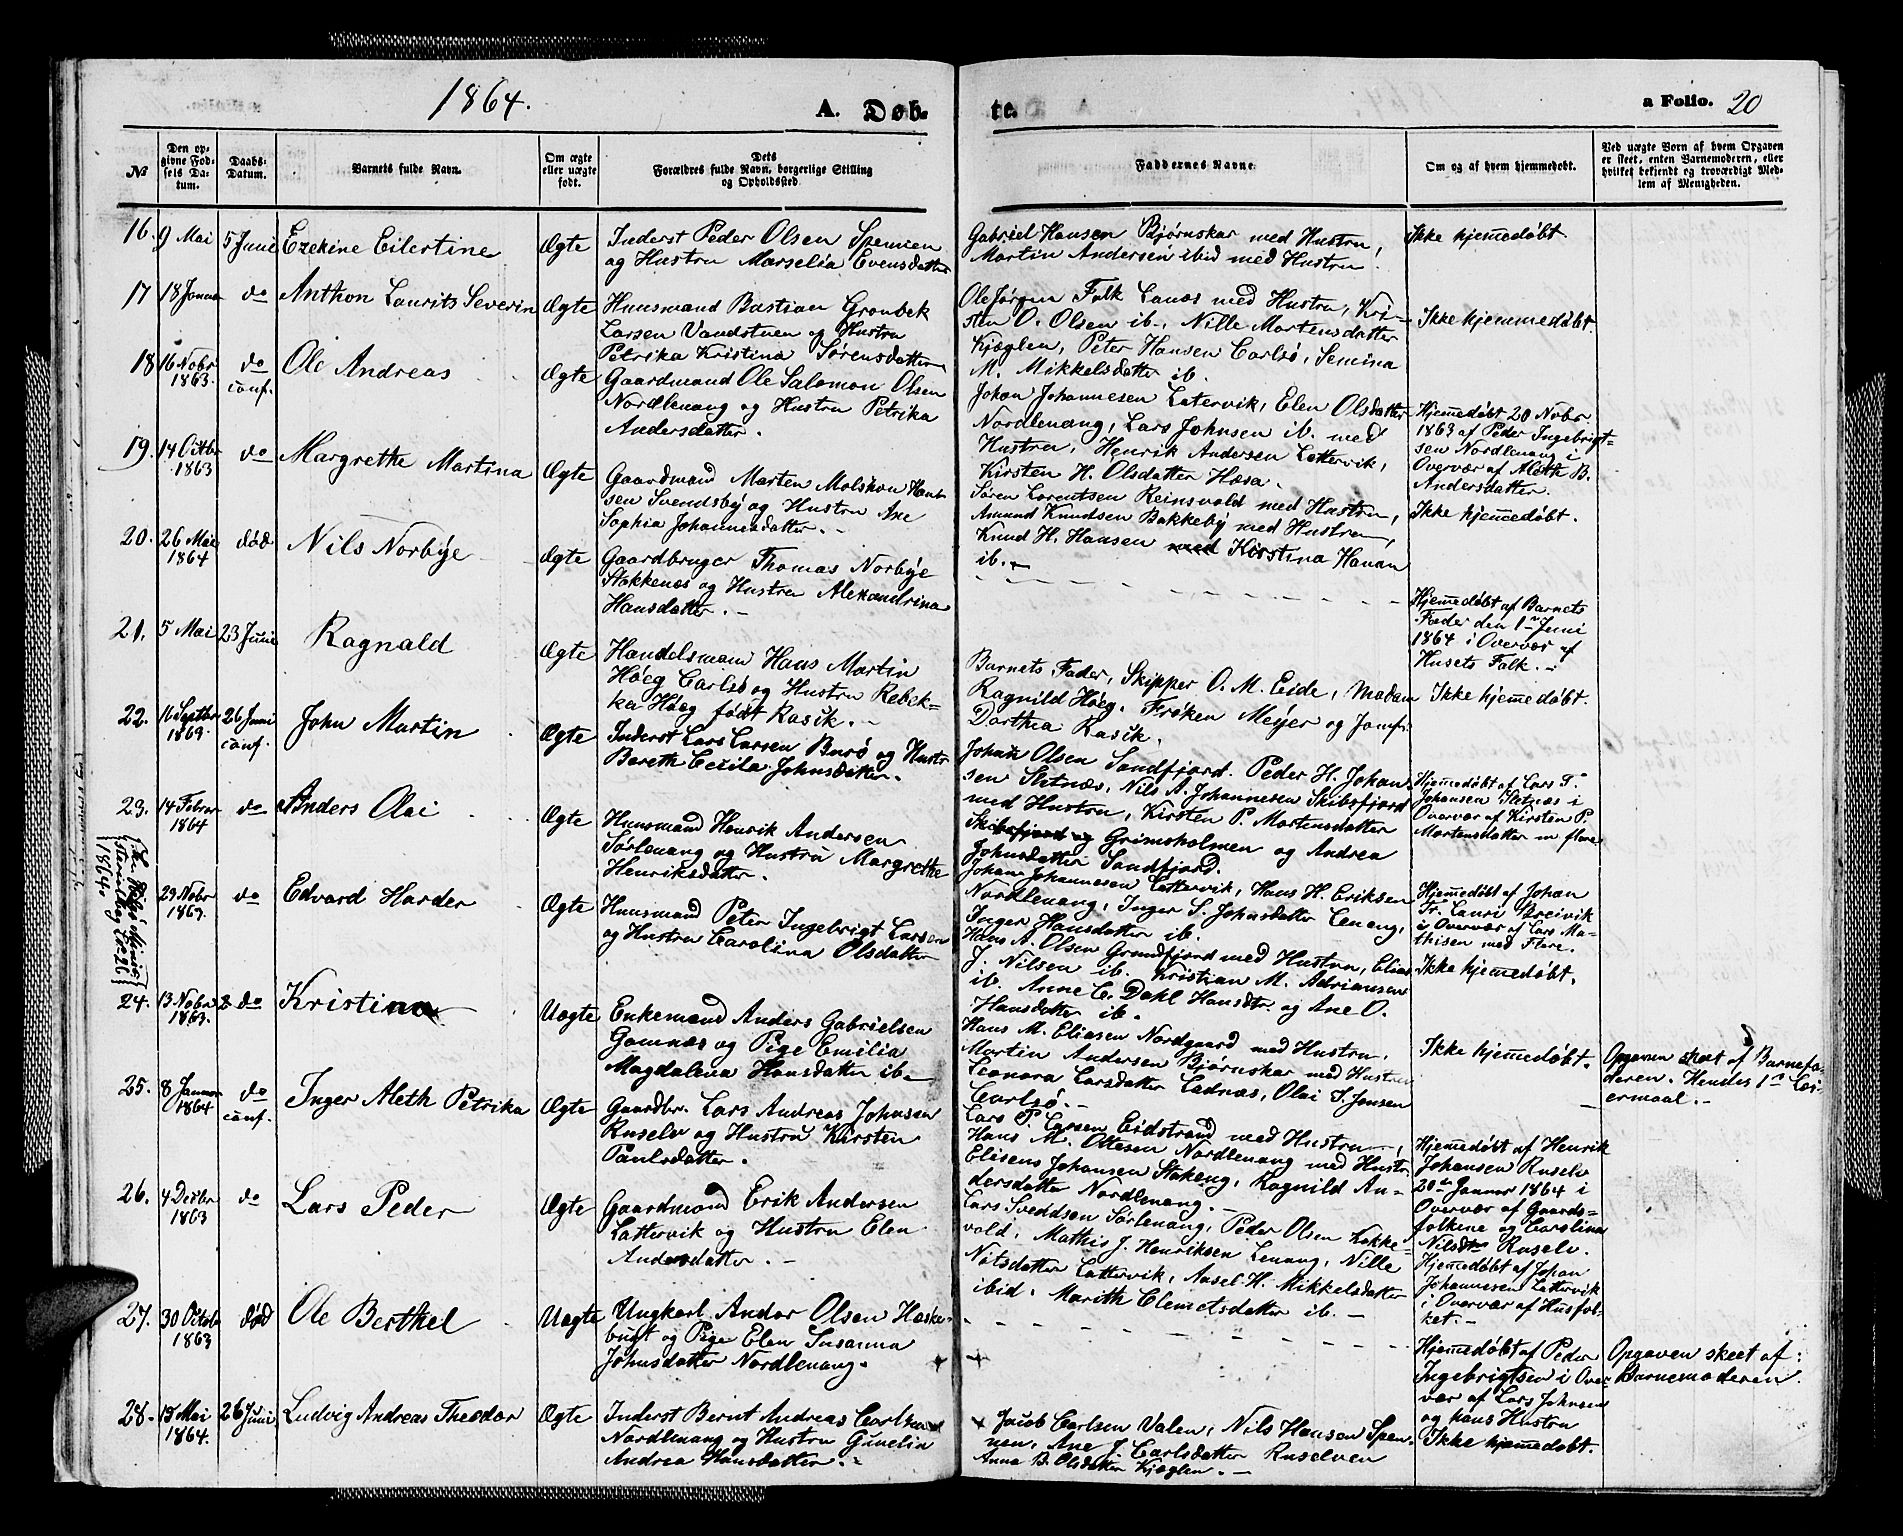 1864. A. Døb-
te. a Folio. 20
№
Den op-
givne Fød-
sels Da-
tum.
Daabs-
Datum.
Barnets fulde Navn.
Om ægte
eller uægte
født.
Dets
Forældres fulde Navn, borgerlige Stilling
og Opholdssted.
Faddernes Navne.
Om og af hvem hjemmedøbt.
Ved uægte Børn af hvem Opgaven
er skeet, enten Barnemoderen, eller
hvilket bekjendt og troværdigt Med-
lem af Menigheden.
16. 9 Mai 5 Juni Ezekine Eilertine Ægte
Inderst Peder Olsen Spennen
og Hustru Marselia Evensdatter
Gabriel Hansen Bjørnskar med Hustru,
Martin Andersen ibid med Hustru.
Ikke hjemedøbt.
17 18 Januar do Anthon Laurits Severin Ægte
Huusmand Bastian Grønbek
Larsen Vandstuen og Hustru
Petrika Kristina Sørensdatter
Ole Jørgen Falk Lanæs med Hustru, Kri-
sten O. Olsen ib., Nille Mortensdatter
Kjæglen, Peter Hansen Carlsø, Semina
M. Mikkelsdatter ib.
Ikke hjemmedøbt.
18 16 Nobr
1863. do
conf. Ole Andreas Ægte
Gaardmand Ole Salomon Olsen
Nordlenang og Hustru Petrika
Andersdatter.
Johan Johannesen Latervik, Elen Olsdatter
Nordlenang, Lars Johnsen ib. med
Hustru, Henrik Andersen Lattervik,
Kirsten H. Olsdatter Hæsa.
Hjemedøbt 20 Nobr.
1863 af Peder Ingebrigt-
sen Nordlenang i
Overvær af Aleth B.
Andersdatter.
19. 14 Octbr
1863 do Margrethe Martina Ægte
Gaardmand Morten Molskow Han-
sen Svendsby og Hustru Ane
Sophia Johannesdatter.
Søren Lorentsen Reinsvold med Hustru,
Amund Knudsen Bakkeby med Hustru,
Knud H. Hansen med Kirstina Hanan
ib.
Ikke hjemedøbt.
20. 26 Mai
1864 død Nils Norbye Ægte
Gaardbruger Thomas Norbye
Stokkenæs og Hustru Alexandrina
Hansdatter.
Hjemedøbt af Barnets
Fader den 1ste Juni
1864 i Overvær af
Husets Folk.
21. 5 Mai 23 Juni Ragnald Ægte
Handelsmann Hans Martin
Høeg Carlsø og Hustru Rebek-
ka Høeg født Rasik.
Barnets Fader, Skipper O. M. Eide, Madam
Ragnild Høeg, Frøken Meyer og Jomfr.
Dorthea Rasik.
Ikke hjemedøbt.
22. 16 Septbr
1863. 26 Juni
conf. John Martin Ægte
Inderst Lars Larsen Burø og Hustr.
Bereth Cecila Johnsdatter.
Johan Olsen Sandfjord. Peder H. Johan-
sen Sletnæs, Nils A. Johannesen Skibsfjord
med Hustru, Kirsten P. Mortensdatter
Skibsfjord og Grimsholmen og Andrea
Johnsdatter Sandfjord.
Hjemedøbt af Lars T.
Johansen Sletnæs i
Overvær af Kirsten P.
Mortensdatter m flere
23. 14 Februar
1864 do Anders Olai Ægte
Huusmand Henrik Andersen
Sørlenang og Hustru Margrethe
Henriksdatter.
Johan Johannesen Lattervik, Hans H. Eriksen
Nordlenang, Inger S. Johnsdatter Lenang,
Inger Hansdatter ib.
Hjemedøbt af Johan
Fr. Lauri Breivik
i Overvær af Lars Ma-
thisen med Flere.
1864.
29 Nobr
1863. do Edvard Harder Ægte
Huusmand Peter Ingebrigt Larsen
og Hustru Carolina Olsdatter
Hans A. Olsen Grundfjord med Hustru, Elias
J. Nilsen ib. Kristian M. Adriansen
ib. Anne C. Dahl Hansdtr. og Ane O.
Hansdatter ib.
Ikke hjemedøbt.
24. 13 Nobr
1863. do Kristina Uægte
Enkemand Anders Gabrielsen
Gamnæs og Pige Emilia
Magdalena Hansdatter ib.
Hans M. Eliasen Nordgaard med Hustru,
Martin Andersen Bjørnskar med Hustru
Leonora Larsdatter Ladnæs, Olai S. Jensen
Carlsø.
Ikke hjemedøbt.
Opgaven skeet af Barnefa-
deren. Hendes 1ste Lei-
ermaal.
25. 8 Januar
1864 do
conf. Inger Aleth Petrika Ægte
Gaardbr. Lars Andreas Johnsen
Ruselv og Hustru Kirsten
Paulsdatter.
Lars P. Larsen Eidstrand med Hustru,
Hans M. Ottesen Nordlenang med Hustr.
Elisens Johansen Stakeng, Ragnild An-
dersdatter Nordlenang.
Hjemedøbt af Henrik
Johansen Ruselv
20de Januar 1864 i
Overvær af Gaards-
folkene og Carolina
Nilsdtr Ruselv.
26. 4 Desbr
1863 do Lars Peder Ægte
Gaardmand Erik Andersen
Lattervik og Hustru Elen
Andersdatter.
Lars Svedsen Sørlenang, Peder Olsen Kokke-
vold, Mathis J. Henriksen Lenang, Nille
Nilsdatter Lattervik, Axsel H. Mikkelsdatter
ibid. Marith Clemetsdatter ib.
Hjemedøbt af Johan
Johannesen Lattervik
i Overvær af Husfol-
ket.
27. 30 Octobr
1863 død Ole Berthel Uægte
Ungkarl Andor Olsen Haske-
bugt og Pige Elen Susanna
Johnsdatter Nordlenang.
Hjemedøbt af Peder
Ingebrigtsen i Over-
vær af Lars Johnsen
og hans Hustru
Opgaven skeet af
Barnemoderen.
28. 15 Mai
1864. 26 Juni Ludvig Andreas Theodor Ægte
Inderst Bernt Andreas Carlsen
Nordlenang og Hustru Gunelia
Andrea Hansdatter.
Jacob Carlsen Valen, Nils Hansen Spen-
nen, Ane J. Carlsdatter Ruselven
Anna B. Olsdatter Kjæglen.
Ikke hjemedøbt.